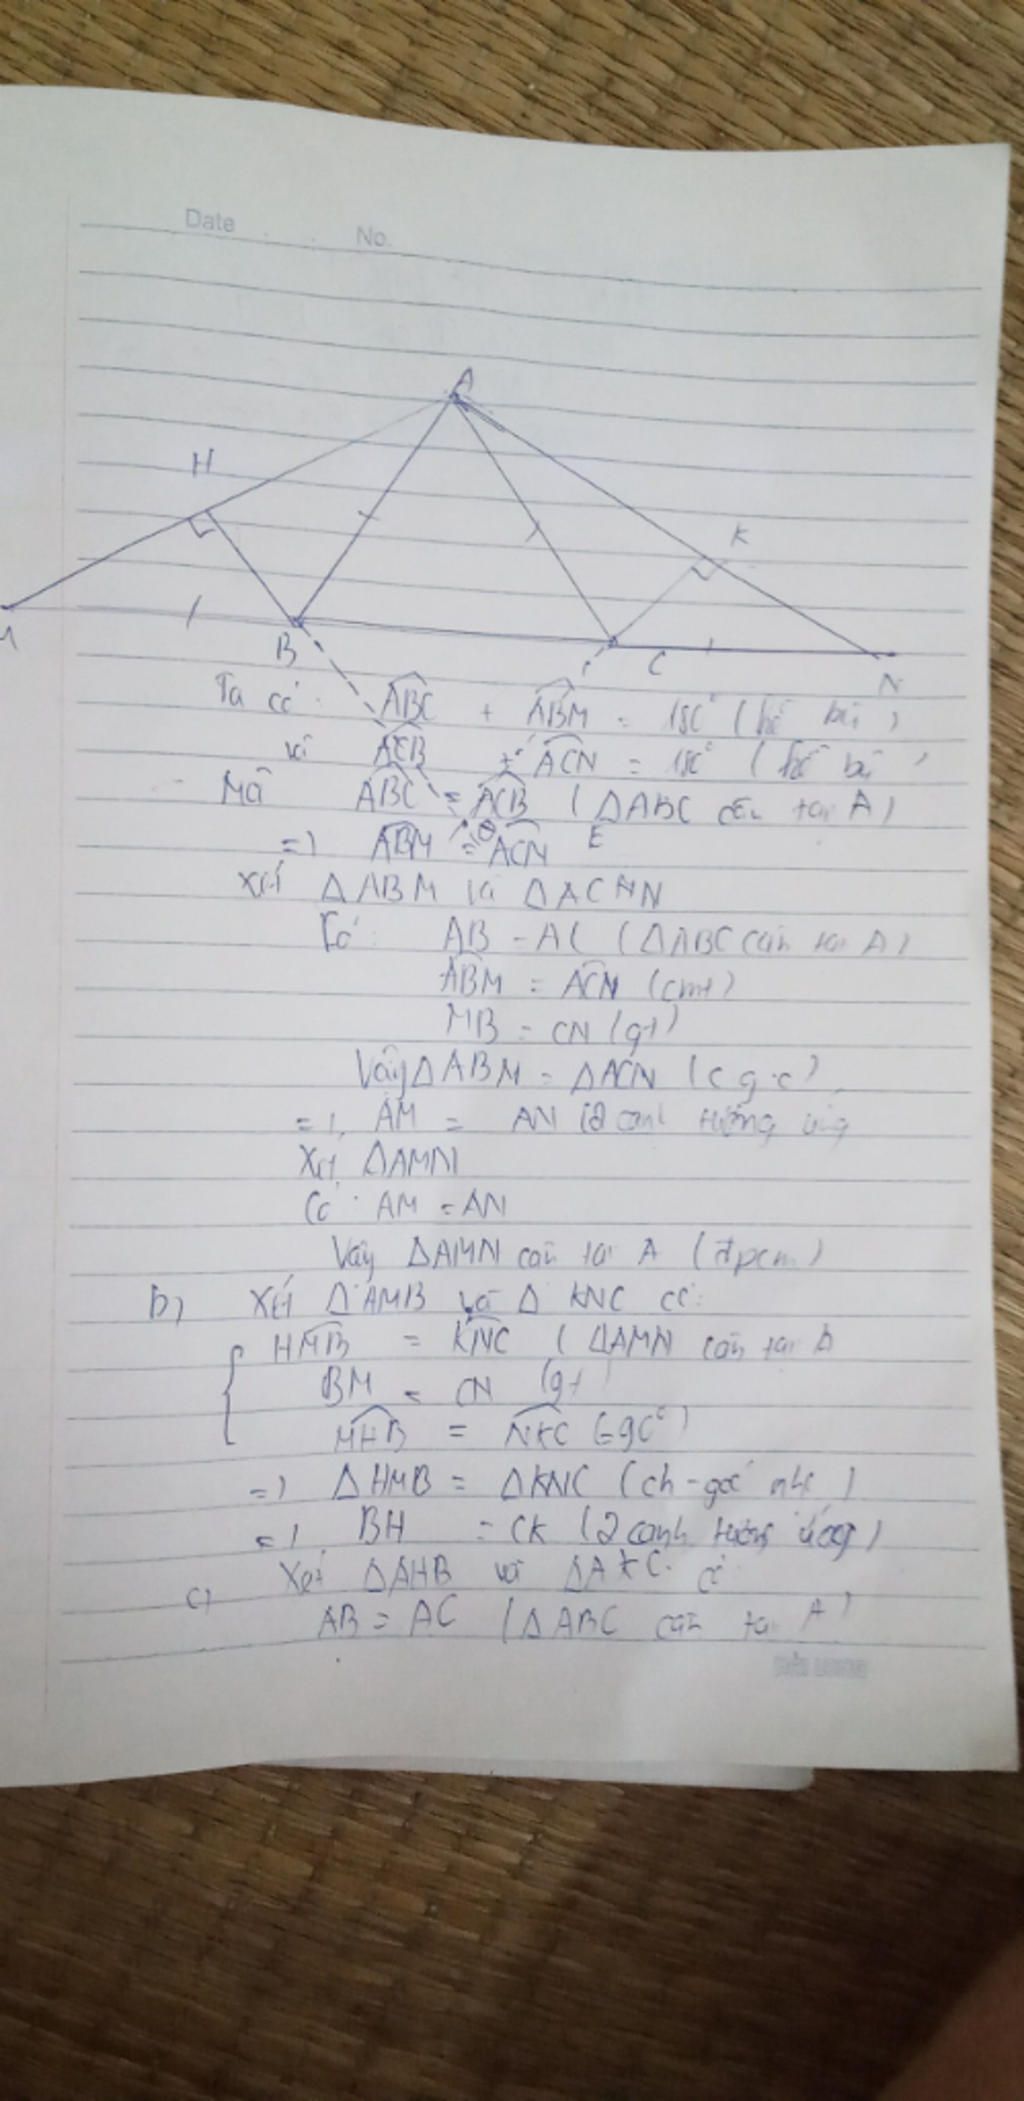 Date No.
A
H
K
M
B
C
N
Ta có: ABC + ABM = 180° (kề bù)
và ACB + ACN = 180° (kề bù
Mà ABC = ACB (ΔABC cân tại A)
O
E
=) ABM = ACN
Xét ΔABM và ΔACN
Có: AB = AC (ΔABC cân tại A)
ABM = ACN (cmt)
MB = CN (gt)
Vậy ΔABM = ΔACN (c g.c)
=) AM = AN (2 cạnh tương ứng
Xét ΔAMN
Có: AM = AN
Vậy ΔAMN cân tại A (đpcm)
b) Xét ΔAMB và Δ KNC có:
HMB = KNC (ΔAMN cân tại A
BM = CN (gt)
MHB = NKC (=90°)
=) ΔHMB = ΔKNC (ch-góc nhọ)
=) BH = CK (2 cạnh tương ứng)
c) Xét ΔAHB và ΔAKC có
AB = AC (ΔABC cân tại A)